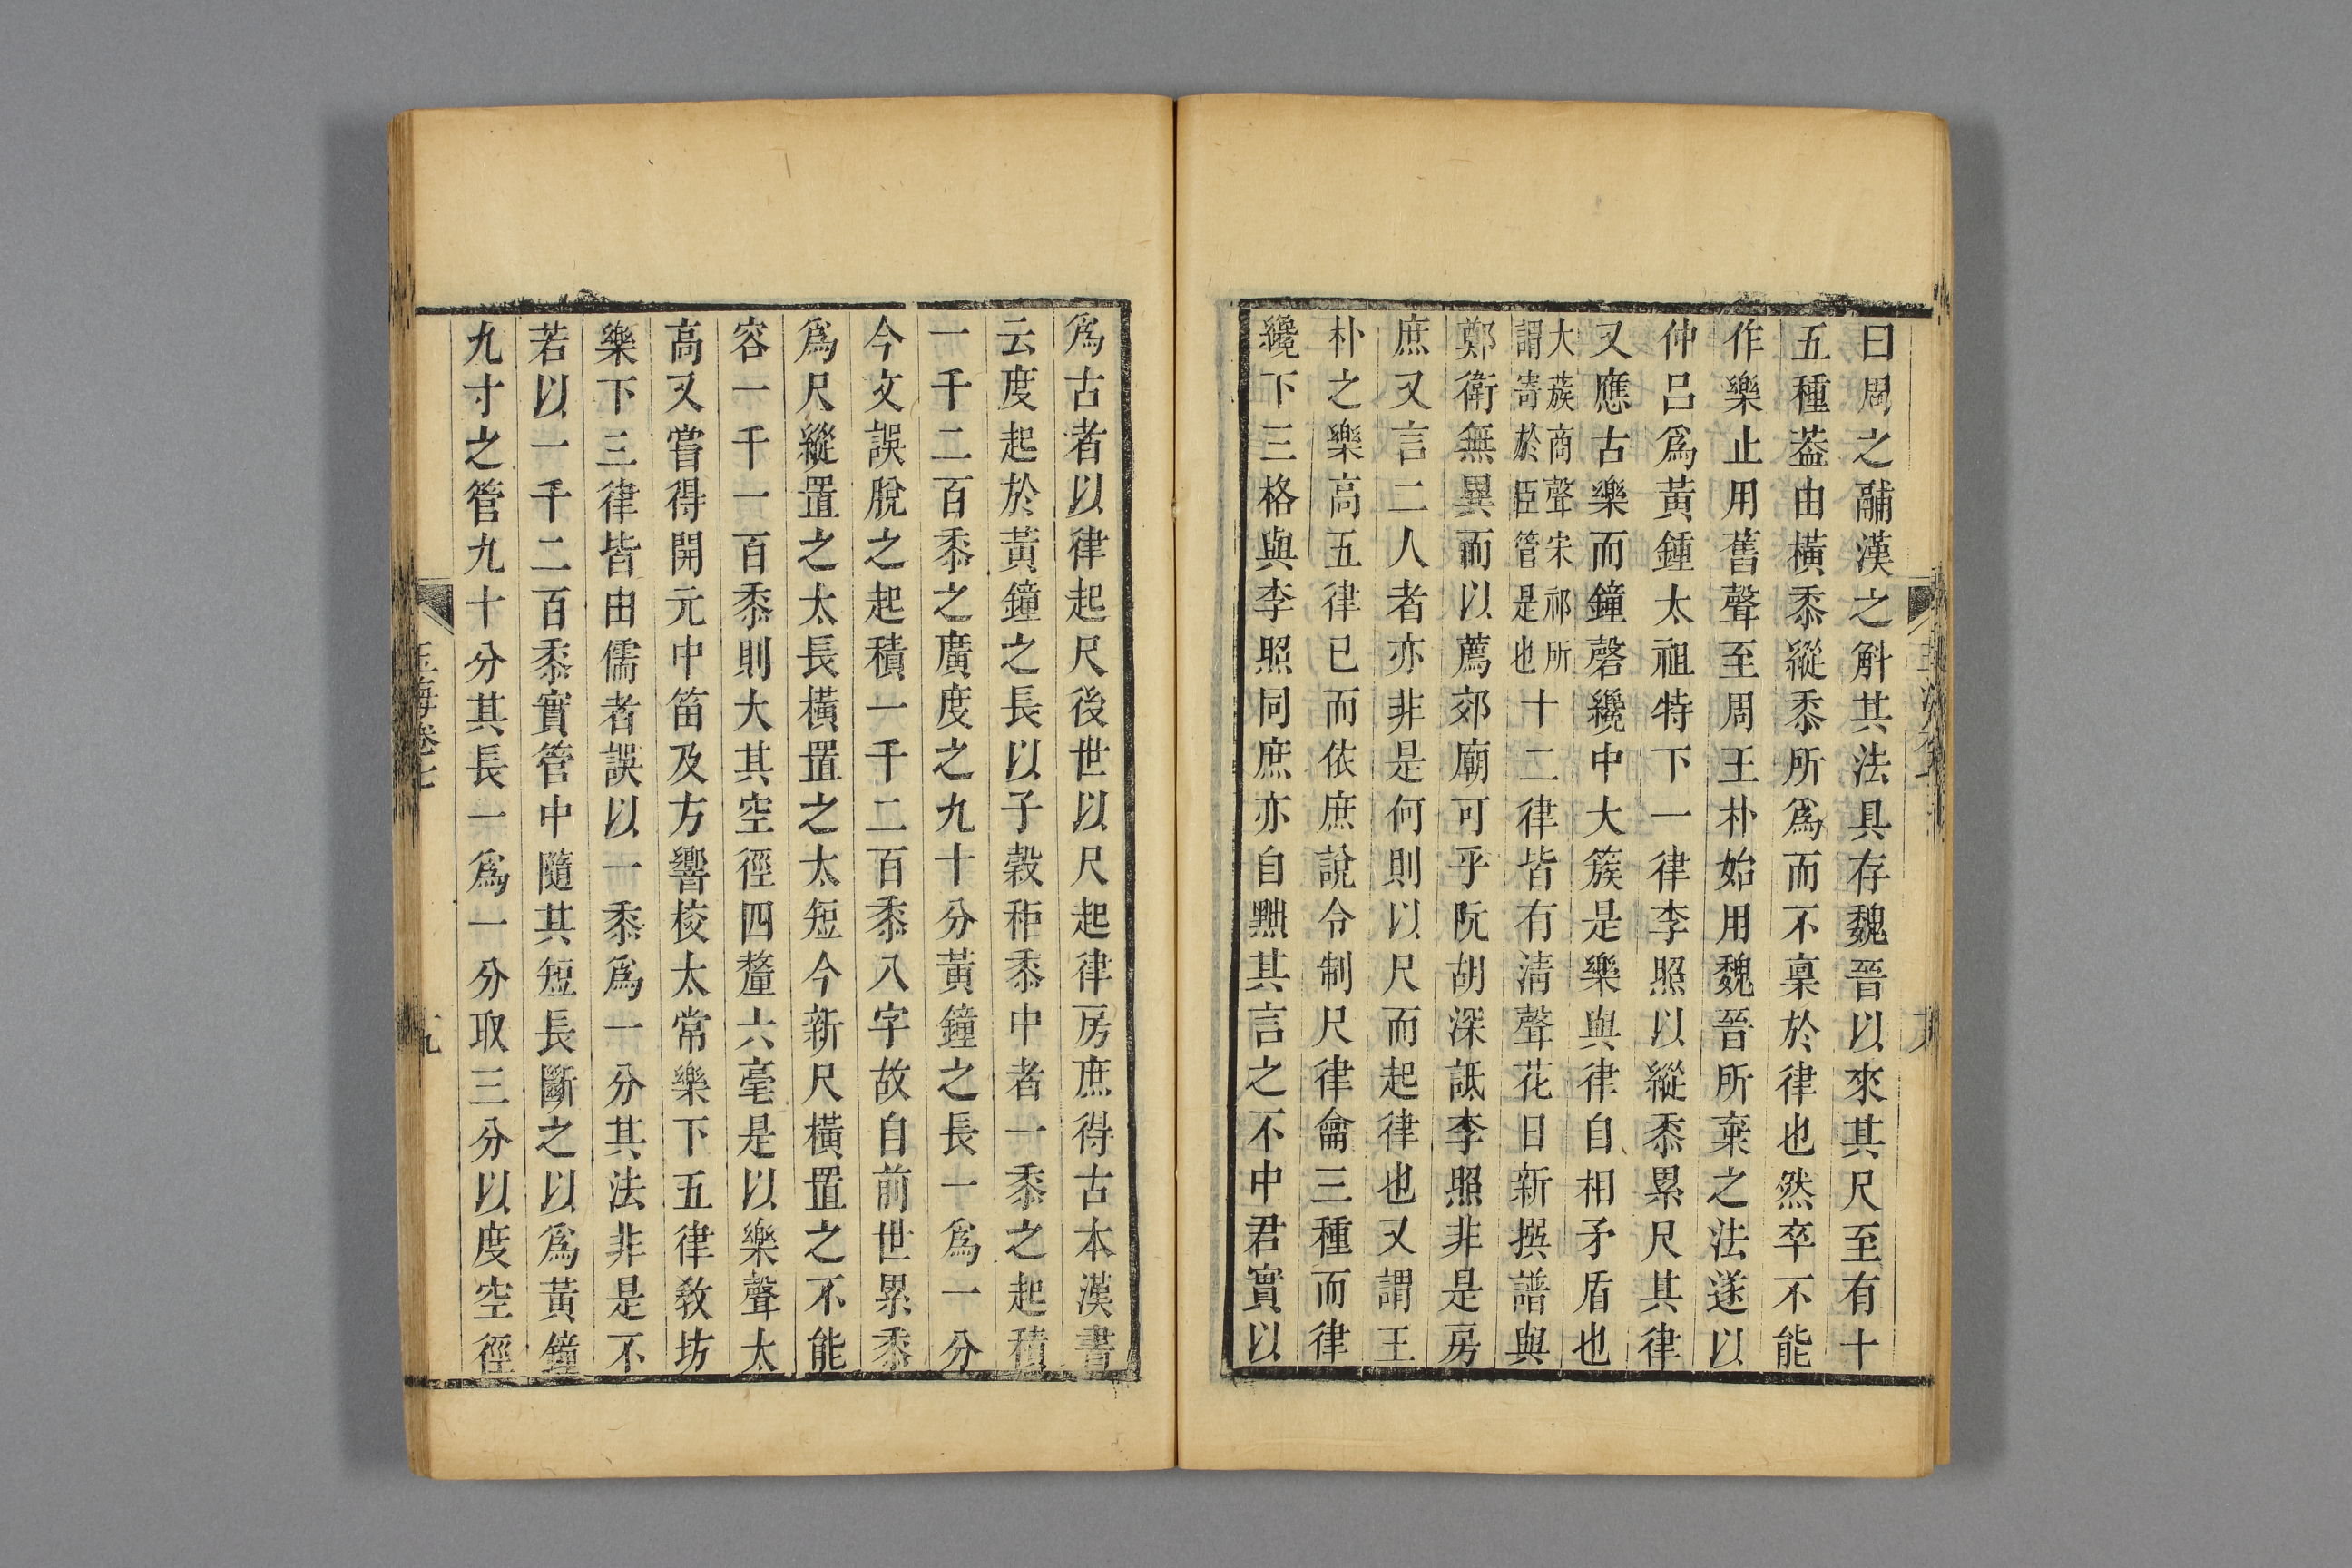 曰周之鬴漢之斛其法具存魏晉以來其尺至有十
五種葢由橫黍縱黍所爲而不稟於律也然卒不能
作樂止用舊聲至周王朴始用魏晉所棄之法遂以
仲呂爲黃鍾太祖特下一律李照以縱黍累尺其律
又應古樂而鐘磬纔中大簇是樂與律自相矛盾也
大蔟商聲宋祁所
謂寄於臣管是也
十二律皆有淸聲花日新撰譜與
鄭衛無異而以薦郊廟可乎阮胡深詆李照非是房
庶又言二人者亦非是何則以尺而起律也又謂王
朴之樂高五律已而依庶說令制尺律龠三種而律
纔下三格與李照同庶亦自黜其言之不中君實以
爲古者以律起尺後世以尺起律房庶得古本漢書
云度起於黃鐘之長以子穀秬黍中者一黍之起積
一千二百黍之廣度之九十分黃鐘之長一爲一分
今文誤脫之起積一千二百黍八字故自前世累黍
爲尺縱置之太長橫置之太短今新尺橫置之不能
容一千一百黍則大其空徑四釐六毫是以樂聲太
高又嘗得開元中笛及方響校太常樂下五律敎坊
樂下三律皆由儒者誤以一黍爲一分其法非是不
若以一千二百黍實管中隨其短長斷之以爲黃鐘
九寸之管九十分其長一爲一分取三分以度空徑
玉海卷七